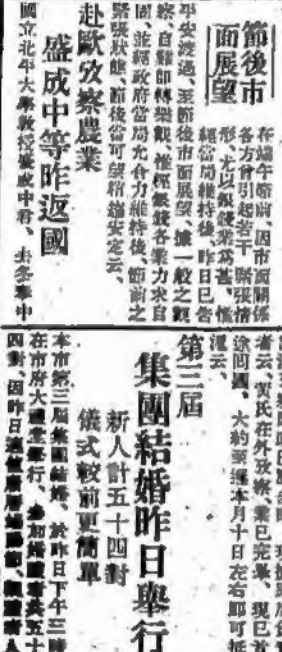 節後市
面展望
在端午節前、因市面關係
各方曾引起若干緊張情
形、尤以銀錢業爲甚、惟
經當局維持後、昨日已告
平安渡過、至節後市面展望、據一般之觀
察、自難卽轉樂觀、惟經銀錢各業力求自
固、並經政府當局允合力維持後、節前之
緊張狀態、節後當可望稍趨安定云、
赴歐攷察農業
盛成中等昨返國
國立北平大學教授盛成中君、去冬奉中
者云、黃氏在外攷察、業已完畢、現已首
途回國、大約至遲本月十日左右即可抵
滬云、
第三屆
集團結婚昨日舉行
新人計五十四對
儀式較前更簡單
本市第三屆集團結婚、於昨日下午三時
在市府大禮堂舉行、參加婚禮者共五十
四對、因昨日適值